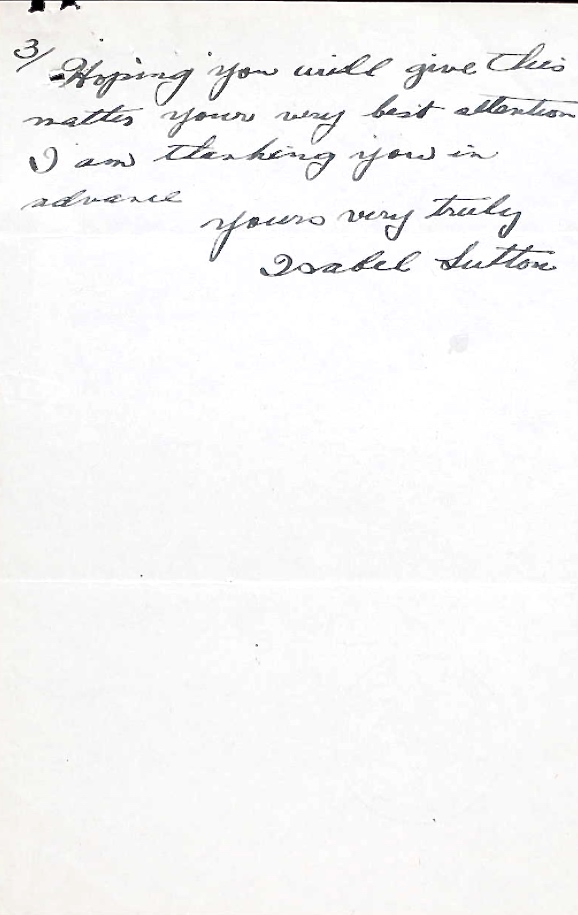 3/ Hoping you will give this
matter your very best attention
I am thanking you in
advance
yours very truly
Isabel Sutton